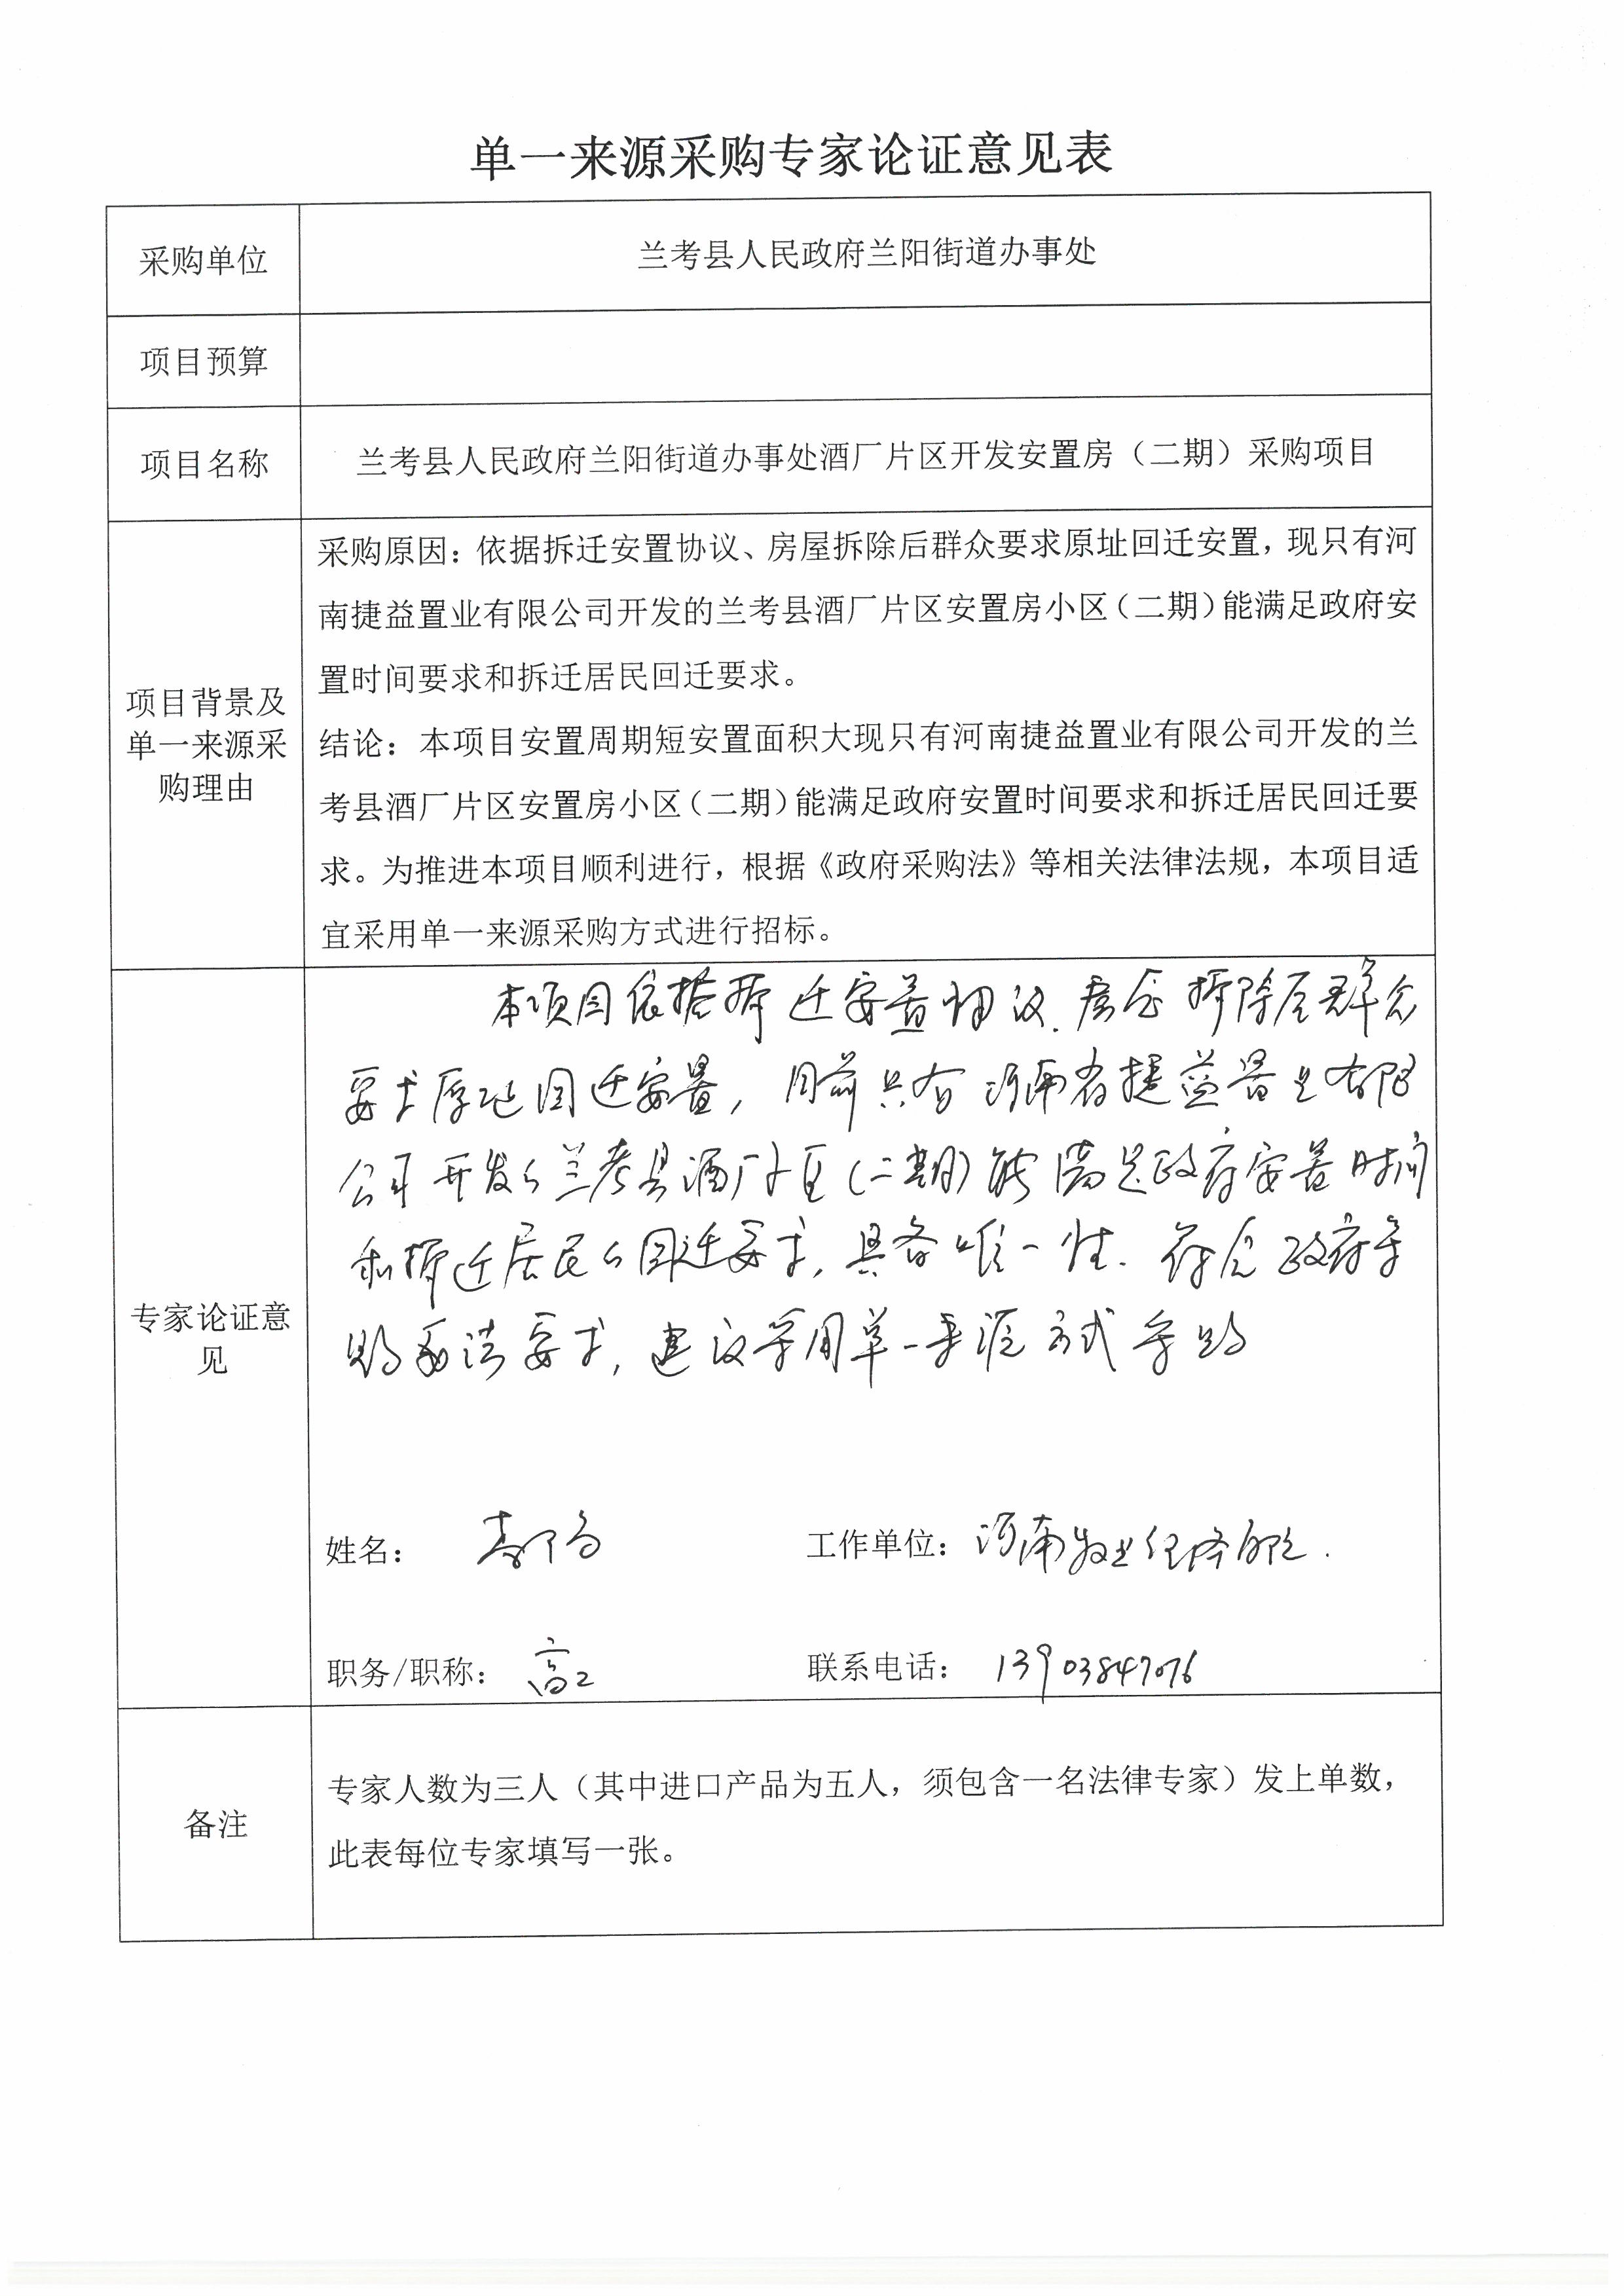 单一来源采购专家论证意见表
采购单位
兰考县人民政府兰阳街道办事处
项目预算
项目名称
兰考县人民政府兰阳街道办事处酒厂片区开发安置房（二期）采购项目
项目背景及
单一来源采
购理由
采购原因：依据拆迁安置协议、房屋拆除后群众要求原址回迁安置，现只有河
南捷益置业有限公司开发的兰考县酒厂片区安置房小区（二期）能满足政府安
置时间要求和拆迁居民回迁要求。
结论：本项目安置周期短安置面积大现只有河南捷益置业有限公司开发的兰
考县酒厂片区安置房小区（二期）能满足政府安置时间要求和拆迁居民回迁要
求。为推进本项目顺利进行，根据《政府采购法》等相关法律法规，本项目适
宜采用单一来源采购方式进行招标。
专家论证意
见
本项目依据拆迁安置协议.房屋拆除后群众
要求原址回迁安置，目前只有河南省捷益置业有限
公司开发的兰考县酒厂片区（二期）能满足政府安置时间
和拆迁居民的回迁要求，具备唯一性.符合政府采
购法要求，建议采用单一来源方式采购
姓名：
工作单位：河南牧业经济学院.
职务/职称：高工
联系电话：13903847076
备注
专家人数为三人（其中进口产品为五人，须包含一名法律专家）发上单数，
此表每位专家填写一张。